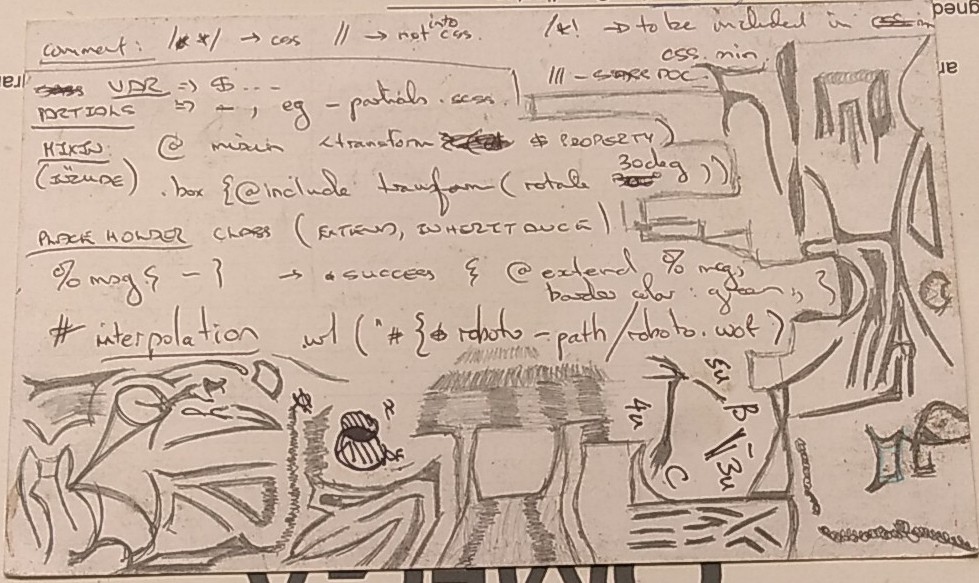 comment: /* */ → css // → not into css. /*! → to be included in css min
/// - DOC.
VAR => $ ...
PARTIALS => _ , eg _partials.scss.
MIXIN: @ mixin <transform $ PROPERTY)
(INCLUDE) .box {@include transform (rotate 30deg ))}
PLACE HOLDER CLASS (EXTEND, INHERITANCE)
% msg { - } → .success { @extend % msg;
border color: green;, }
# interpolation url ("#{$ roboto-path/roboto.wof")
4u 5u
B √-3u
C